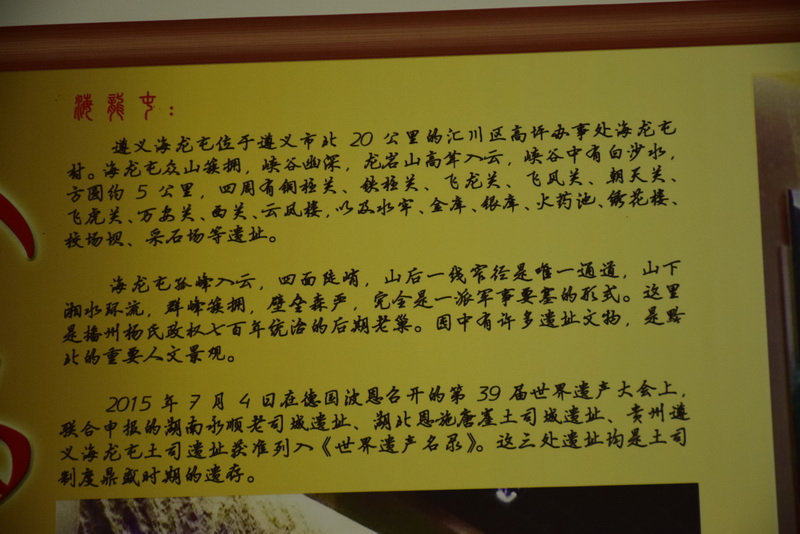 海龙屯：
遵义海龙屯位于遵义市北 20 公里的汇川区高坪办事处海龙屯
村。海龙屯众山簇拥，峡谷幽深，龙岩山高耸入云，峡谷中有白沙水，
方圆约 5 公里，四周有铜柱关、铁柱关、飞龙关、飞凤关、朝天关、
飞虎关、万安关、西关、云凤楼，以及水牢、金库、银库、火药池、绣花楼、
校场坝、采石场等遗址。
海龙屯孤峰入云，四面陡峭，山后一线窄径是唯一通道，山下
湘水环流，群峰簇拥，壁垒森严，完全是一派军事要塞的形式。这里
是播州杨氏政权七百年统治的后期老巢。囤中有许多遗址文物，是黔
北的重要人文景观。
2015 年 7 月 4 日在德国波恩召开的第 39 届世界遗产大会上，
联合申报的湖南永顺老司城遗址、湖北恩施唐崖土司城遗址、贵州遵
义海龙屯土司遗址获准列入《世界遗产名录》。这三处遗址均是土司
制度鼎盛时期的遗存。